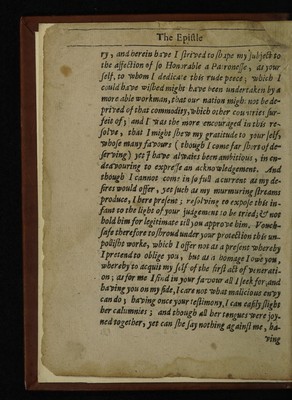 The Epistle
ry, and herein have I strived to shape my subject to
the affection of so Honorable a Patronesse, as your
self, to whom I dedicate this rude peece; which I
could have wished might have been undertaken by a
more able workman, that our nation might not be de-
prived of that commodity, which other countries sur-
feit of; and I was the more encouraged in this re-
solve, that I might shew my gratitude to your self,
whose many favours (though I come far short of de-
serving) yet I have alwaies been ambitious, in en-
deavouring to expresse an acknowledgement. And
though I cannot come in so full a current as my de-
sires would offer, yet such as my murmuring streams
produce, I here present; resolving to expose this in-
fant to the light of your judgement to be tried; & not
hold him for legitimate till you approve him. Vouch-
safe therefore to shroud under your protection this un-
polisht worke, which I offer not as a present whereby
I pretend to oblige you, but as a homage I owe you,
whereby to acquit my self of the first act of venerati-
on; as for me I find in your favour all I seek for, and
having you on my side, I care not what malicious envy
can do; having once your testimony, I can easily slight
her calumnies; and though all her tongues were joy-
ned together, yet can she say nothing against me, ha-
ving